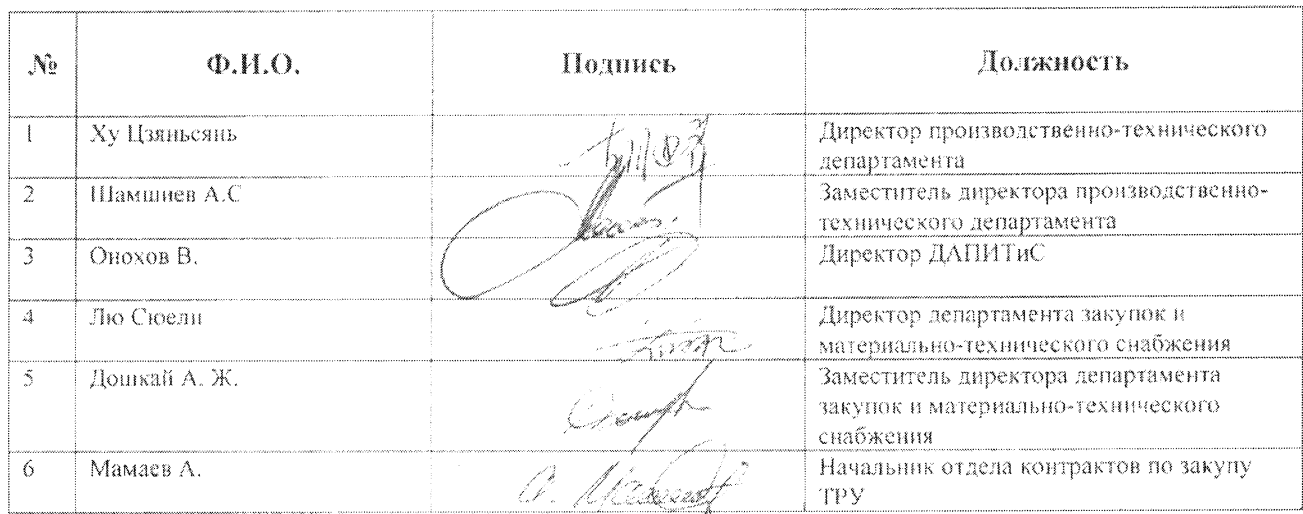 № Ф.И.О. Подпись Должность
1 Ху Цзяньсянь Директор производственно-технического
департамента
2 Шамшиев А.С Заместитель директора производственно-
технического департамента
3 Онохов В. Директор ДАПИТиС
4 Лю Сюели Директор департамента закупок и
материально-технического снабжения
5 Дошкай А. Ж. Заместитель директора департамента
закупок и материально-технического
снабжения
6 Мамаев А. Начальник отдела контрактов по закупу
ТРУ